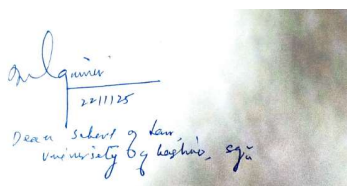 22/11/25
Dean school of Law,
University of Kashmir, Sgr